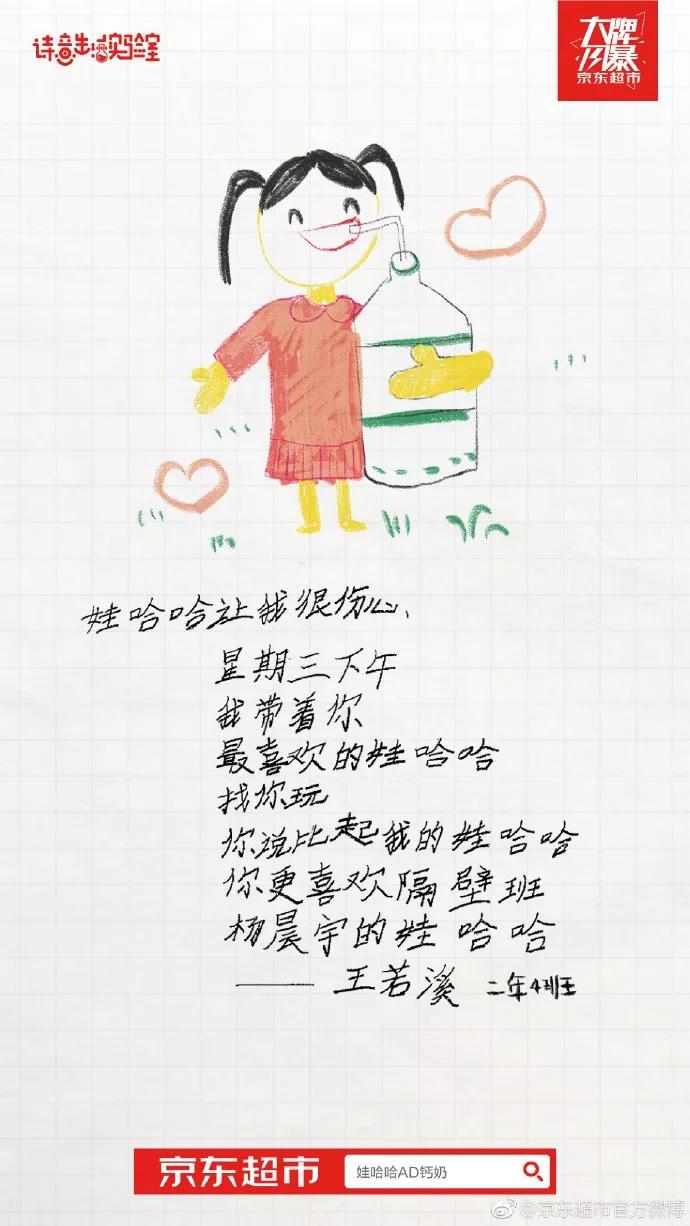 诗意生活实验室
大牌
风暴
京东超市
娃哈哈让我很伤心、
星期三下午
我带着你
最喜欢的娃哈哈
找你玩
你说比起我的娃哈哈
你更喜欢隔壁班
杨晨宇的娃哈哈
—— 王若溪 二年4班
京东超市 娃哈哈AD钙奶
@京东超市官方微博